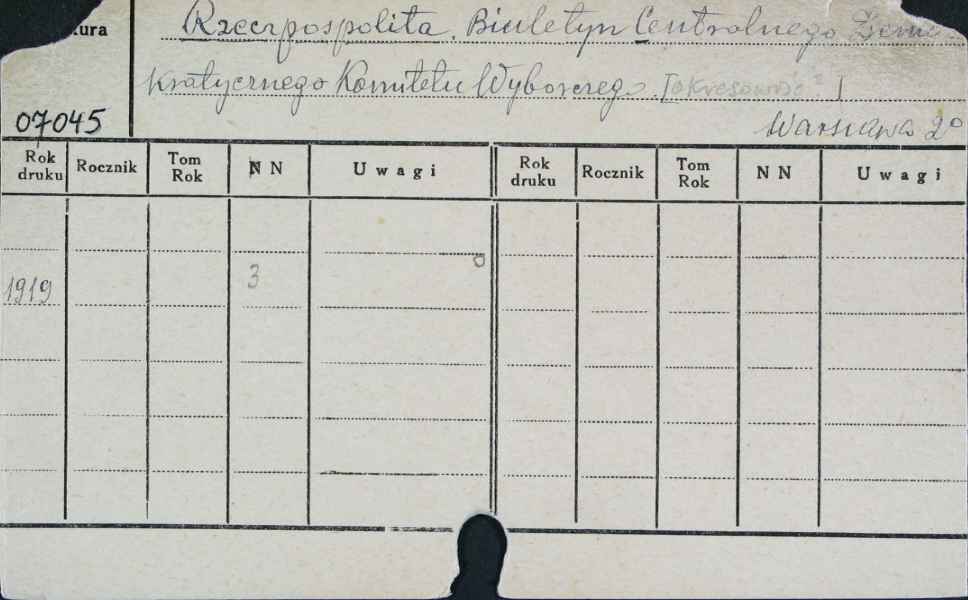 ura Rzeczpospolita. Biuletyn Centralnego Demo
kratycznego Komitetu Wyborczego. [okresowość?]
07045 Warszawa 2°
Rok druku Rocznik Tom Rok NN Uwagi Rok druku Rocznik Tom Rok NN Uwagi
1919 3